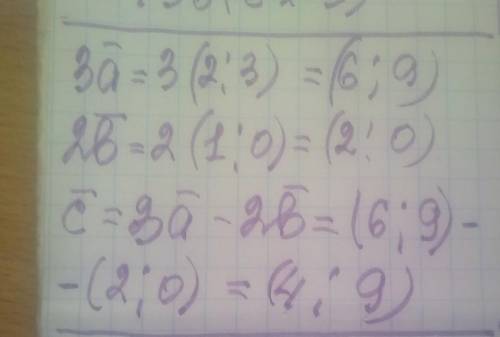 3a̅ = 3(2; 3) = (6; 9)
2b̅ = 2(1; 0) = (2; 0)
c̅ = 3a̅ - 2b̅ = (6; 9) -
- (2; 0) = (4; 9)